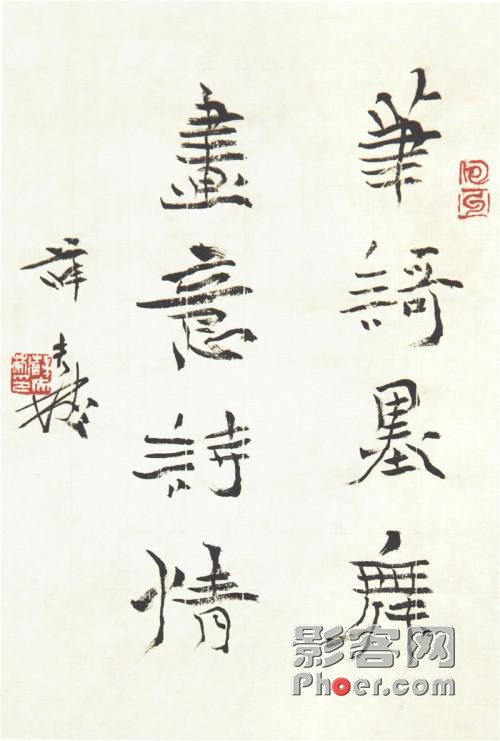 筆謌墨舞
畫意詩情
薛夫彬
影客网
Phoer.com